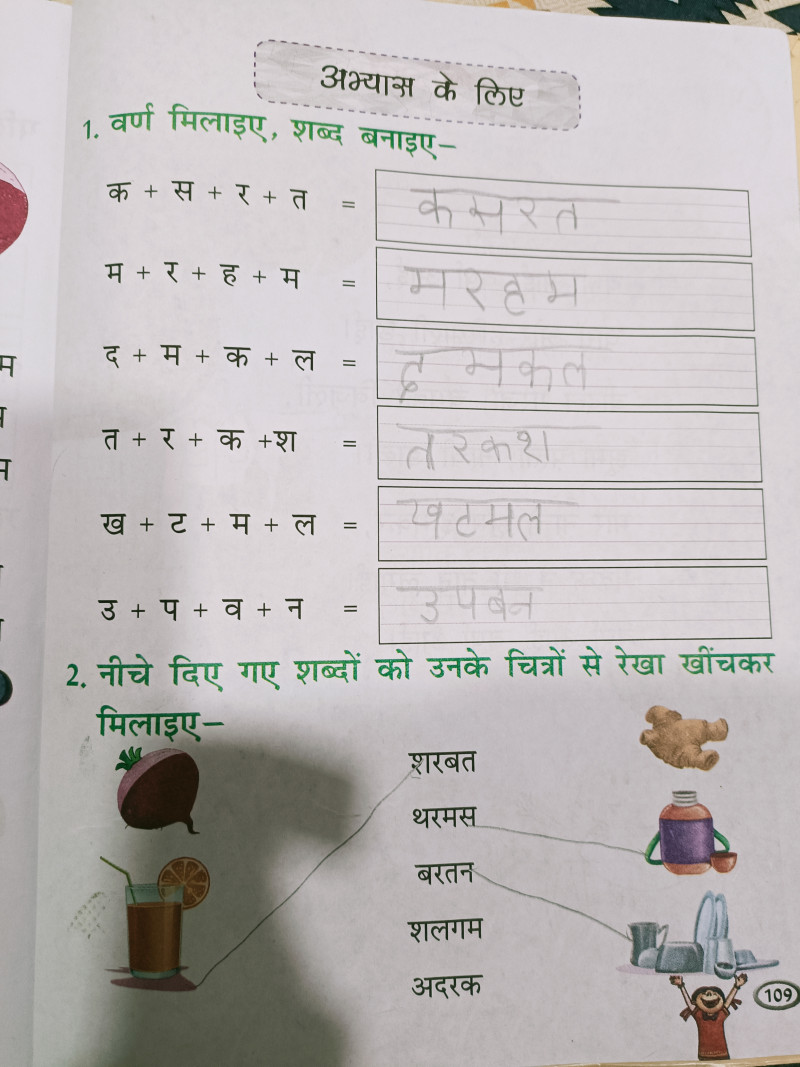 अभ्यास के लिए
1. वर्ण मिलाइए, शब्द बनाइए–
क + स + र + त = कसरत
म + र + ह + म = मरहम
द + म + क + ल = दमकल
त + र + क +श = तरकश
ख + ट + म + ल = खटमल
उ + प + व + न = उपबन
2. नीचे दिए गए शब्दों को उनके चित्रों से रेखा खींचकर
मिलाइए–
शरबत
थरमस
बरतन
शलगम
अदरक
109